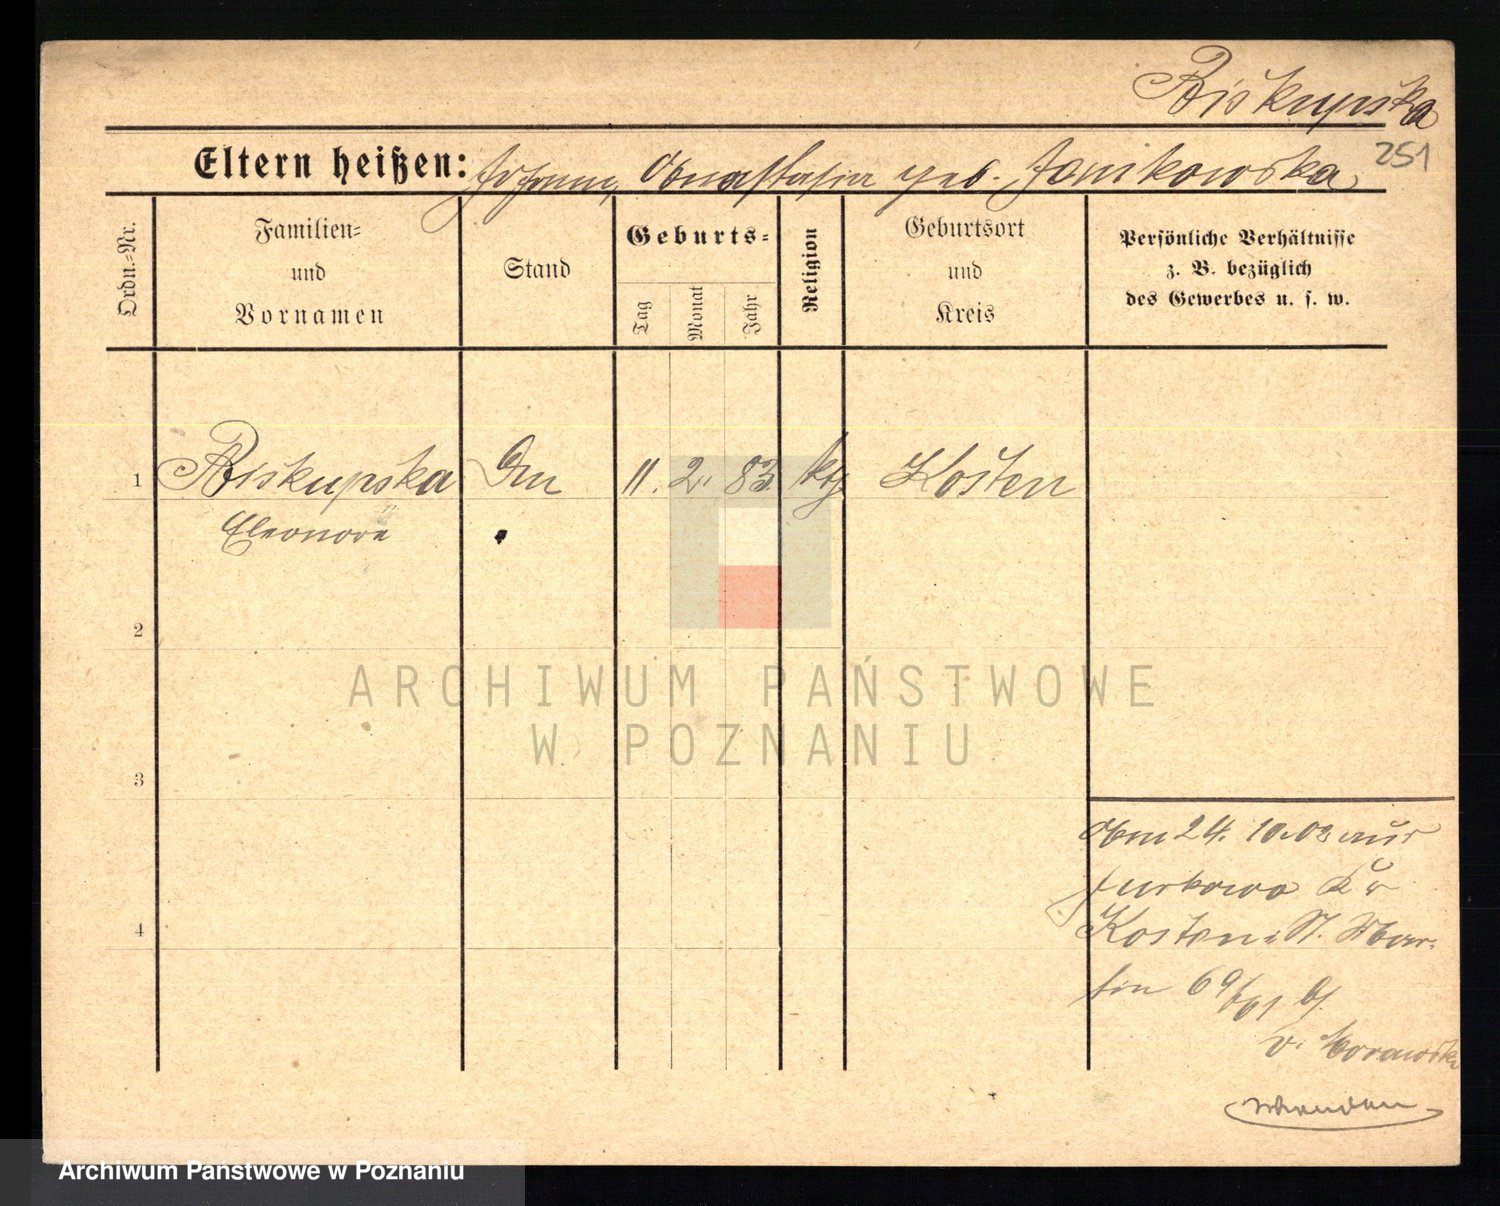 Biskupska
251
Eltern heißen: Johann, Anastasia geb. Janikowska,
Ordn.-Nr.
Familien-
und
Vornamen
Stand
Geburts-
Tag
Monat
Jahr
Religion
Geburtsort
und
Kreis
Persönliche Verhältnisse
z. B. bezüglich
des Gewerbes u. s. w.
1
Biskupska
11. 2. 83.
ktg.
Kosten
Eleonore
2
ARCHIWUM PAŃSTWOWE
W POZNANIU
3
Am 24. 10.03 aus
Jurkowo Kr
4
Kosten: St. Mar-
tin 69
v. Morawska
Archiwum Państwowe w Poznaniu